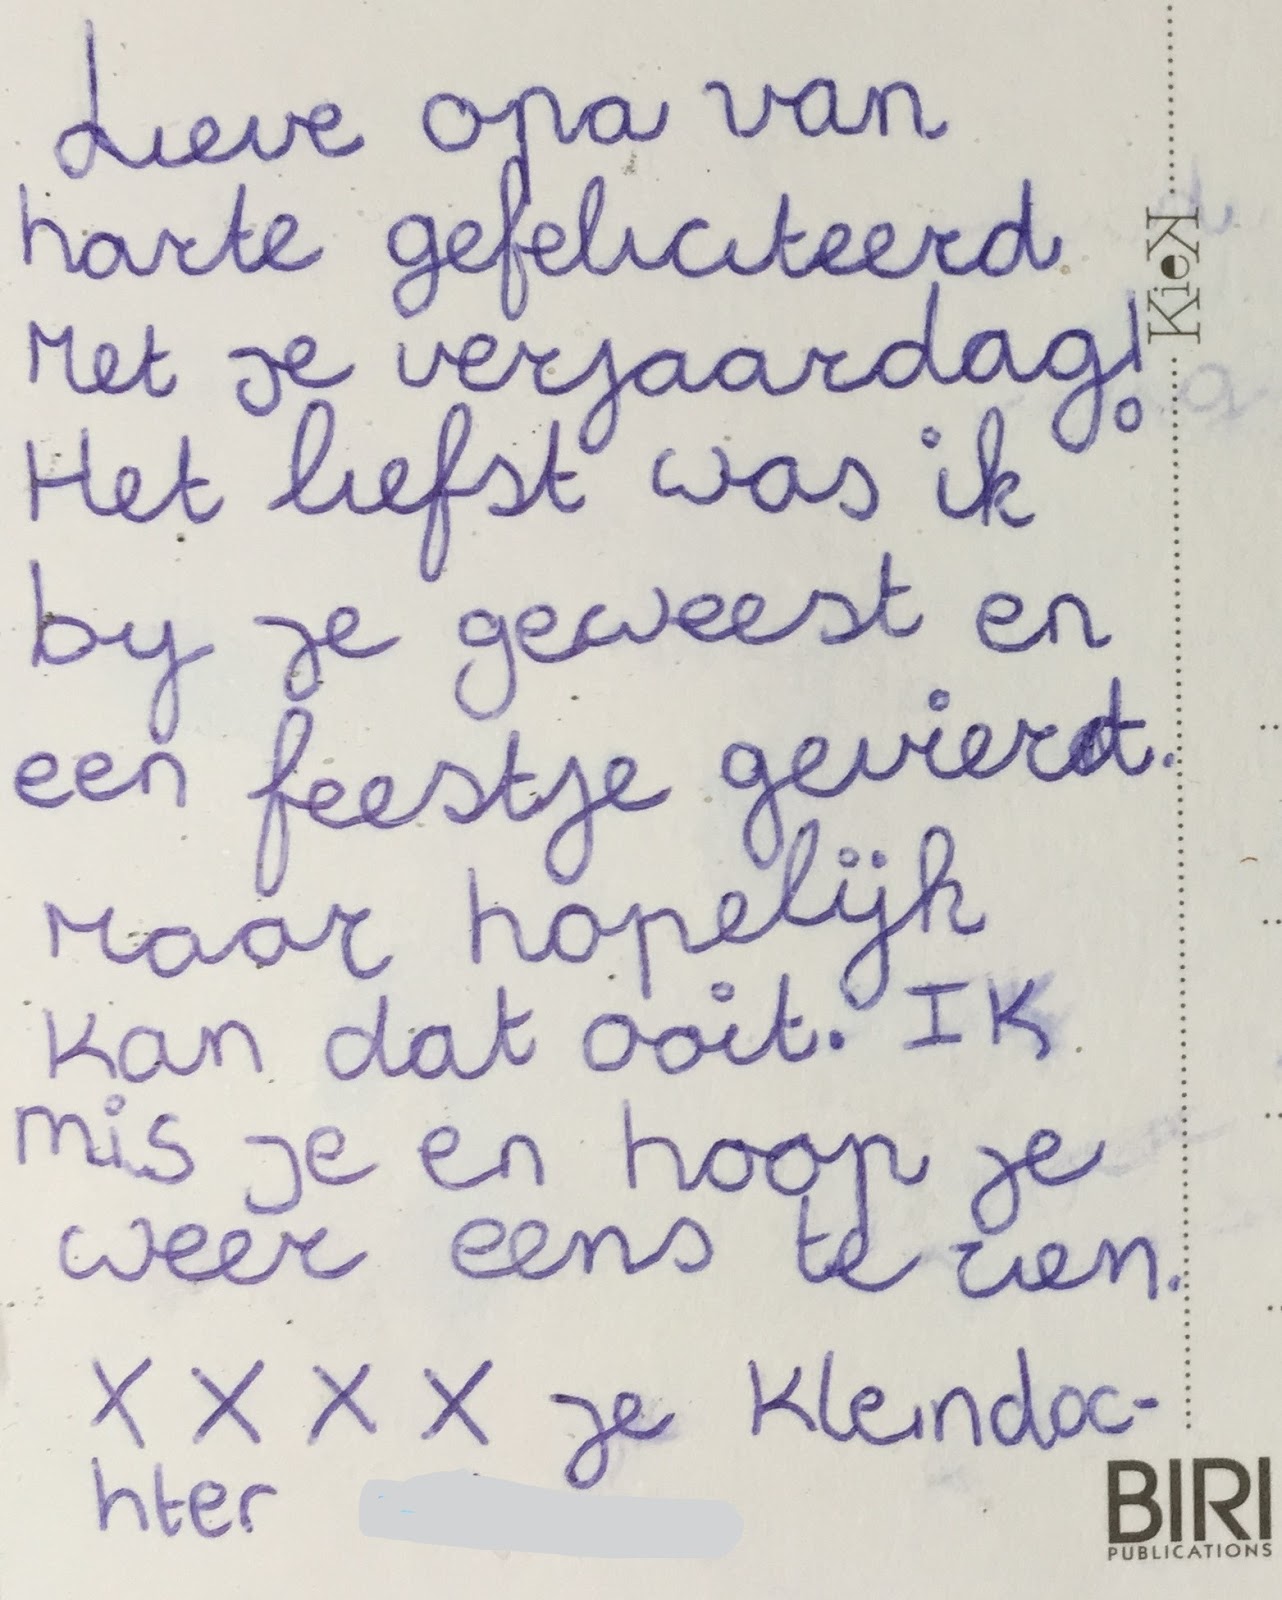 Lieve opa van
harte gefeliciteerd
Met je verjaardag!
Het liefst was ik
bij je geweest en
een feestje gevierd.
Maar hopelijk
kan dat ooit. IK
mis je en hoop je
weer eens te zien.
X X X X je kleindoc-
hter
KieK
BIRI
PUBLICATIONS